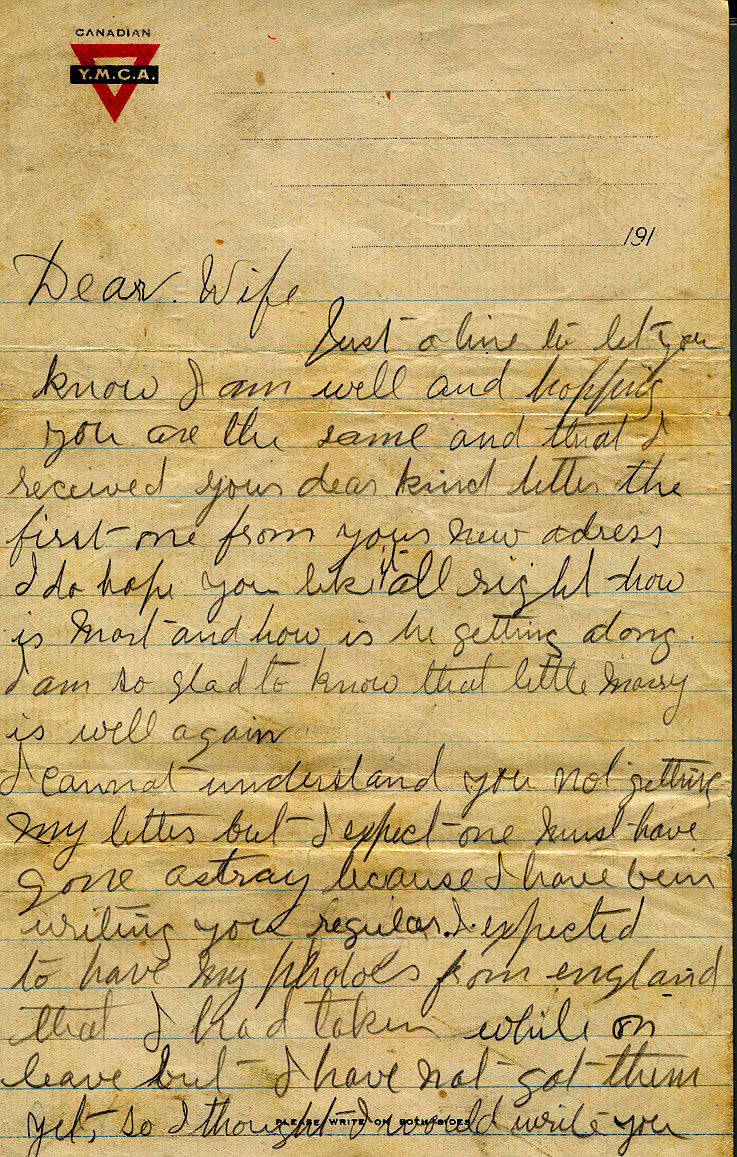 CANADIAN
Y.M.C.A.
191
Dear. Wife
Just a line to let you
know I am well and hopping
you are the same and that I
received your dear kind letter the
first one from your new adress
I do hope you like it all right how
is Mort and how is he getting along.
I am so glad to know that little
is well again
I cannot understand you not getting
my letter but I expect one must have
gone astray because I have been
writing you regular. I expected
to have my photoes from england
that I had taken while on
leave but I have not got them
yet, so I thought I would write you
PLEASE WRITE ON BOTH SIDES